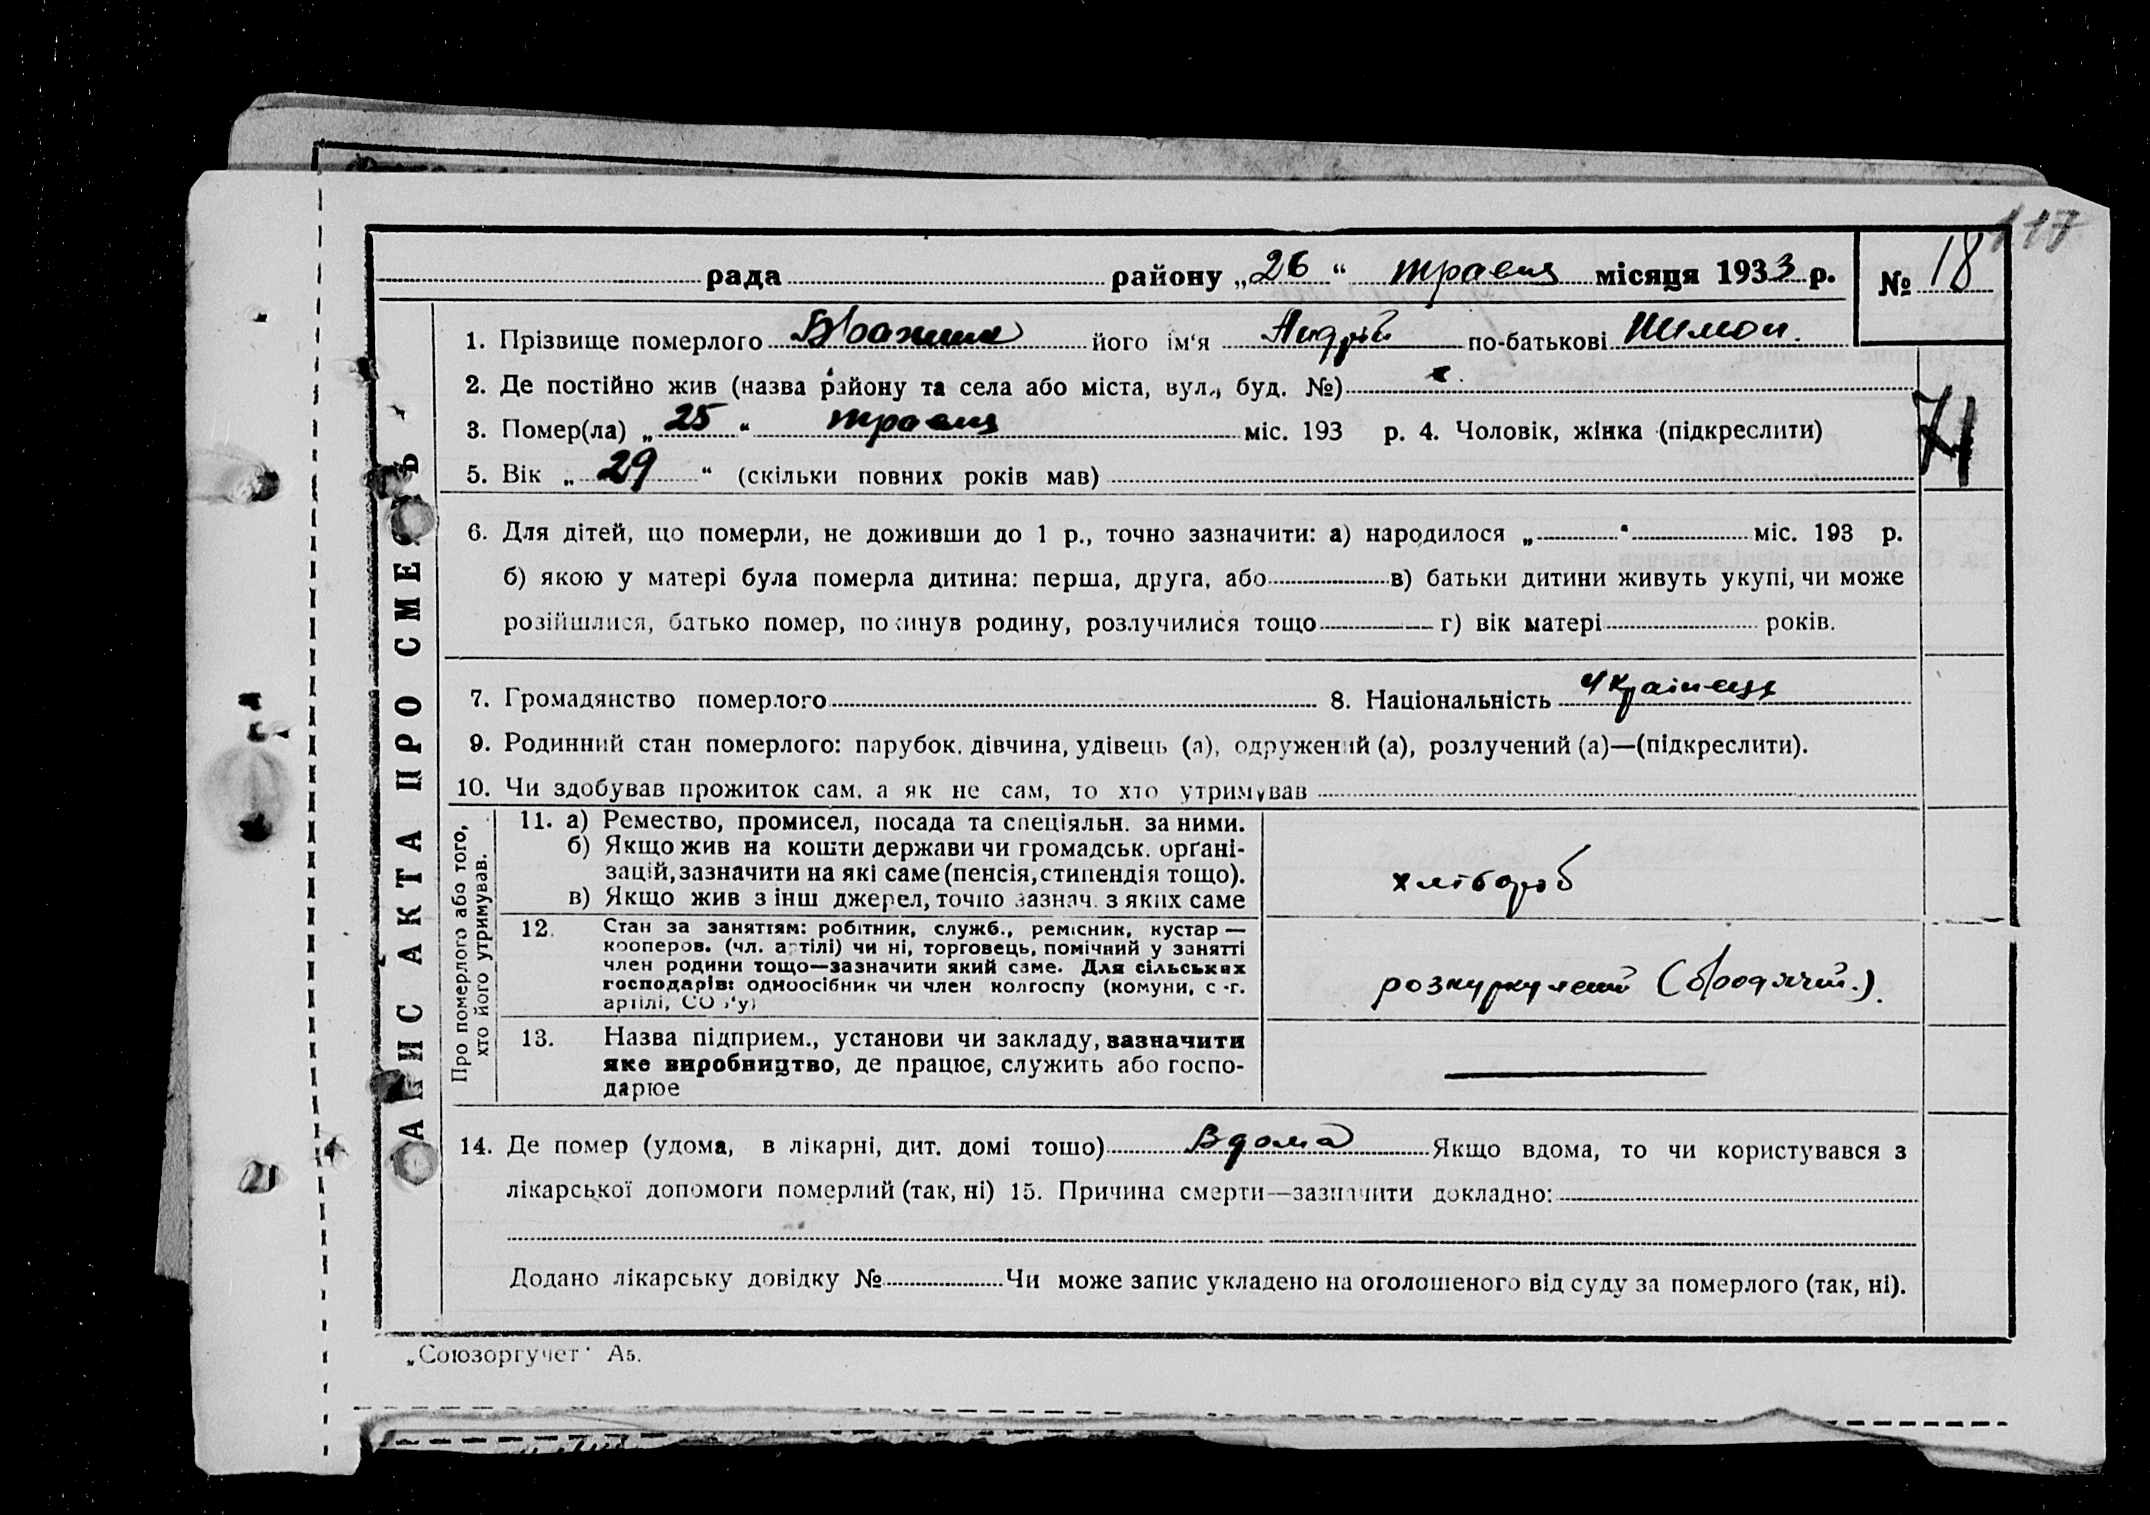 117
рада района району „26“ травня місяця 1933 р. № 18
1. Прізвище померлого його ім'я Андрій по-батькові Шимон.
2. Де постійно жив (назва району та села або міста, вул., буд. №) х.
3. Помер(ла) „25“ травня міс. 193 р. 4. Чоловік, жінка (підкреслити)
71
5. Вік „29“ (скільки повних років мав)
6. Для дітей, що померли, не доживши до 1 р., точно зазначити: а) народилося „ “ міс. 193 р.
б) якою у матері була померла дитина: перша, друга, або в) батьки дитини живуть укупі, чи може
розійшлися, батько помер, покинув родину, розлучилися тощо г) вік матері років.
7. Громадянство померлого 8. Національність українець
9. Родинний стан померлого: парубок, дівчина, удівець (а), одружений (а), розлучений (а)—(підкреслити).
10. Чи здобував прожиток сам, а як не сам, то хто утримував
Про померлого або того,
хто його утримував.
11. а) Ремество, промисел, посада та спеціяльн. за ними.
б) Якщо жив на кошти держави чи громадськ. орґані-
зацій, зазначити на які саме (пенсія, стипендія тощо).
в) Якщо жив з інш джерел, точно зазнач. з яких саме
хлібороб
12. Стан за заняттям: робітник, служб., ремісник, кустар —
кооперов. (чл. артілі) чи ні, торговець, помічний у занятті
член родини тощо—зазначити який саме. Для сільських
господарів: одноосібник чи член колгоспу (комуни, с.-г.
артілі, СОЗ'у)
розкуркулений (бродячий.).
13. Назва підприєм., установи чи закладу, зазначити
яке виробництво, де працює, служить або госпо-
дарює
14. Де помер (удома, в лікарні, дит. домі тощо) Вдома Якщо вдома, то чи користувався з
лікарської допомоги померлий (так, ні) 15. Причина смерти—зазначити докладно:
Додано лікарську довідку № Чи може запис укладено на оголошеного від суду за померлого (так, ні).
ЗАПИС АКТА ПРО СМЕРТЬ
„Союзоргучет" А5.